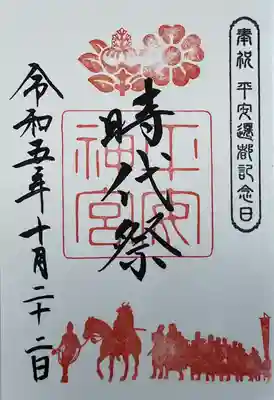 奉祝 平安遷都記念日
時代祭
平安神宮
令和五年十月二十二日